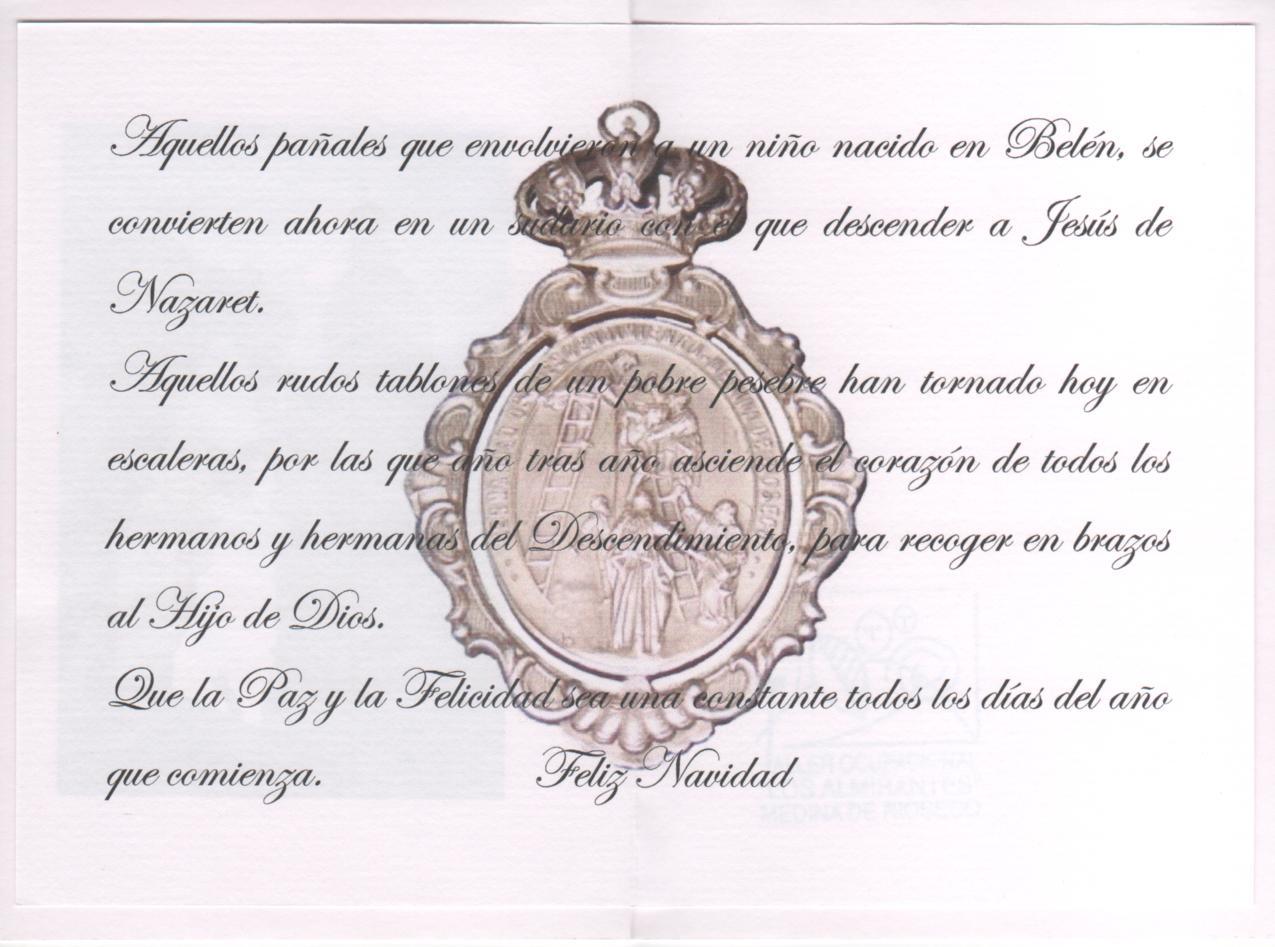 Aquellos pañales que envolvieron a un niño nacido en Belén, se
convierten ahora en un sudario con el que descender a Jesús de
Nazaret.
Aquellos rudos tablones de un pobre pesebre han tornado hoy en
escaleras, por las que año tras año asciende el corazón de todos los
hermanos y hermanas del Descendimiento, para recoger en brazos
al Hijo de Dios.
Que la Paz y la Felicidad sea una constante todos los días del año
que comienza. Feliz Navidad
TALLER OCUPACIONAL
"LOS ALMIRANTES"
MEDINA DE RIOSECO